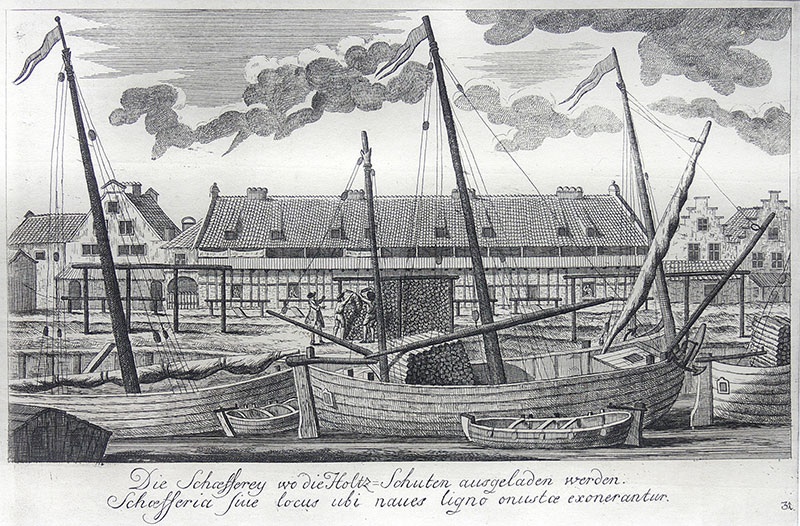 Die Schœfferey wo die Holtz=Schuten ausgeladen werden.
Schœfferia sive locus ubi naves ligno onustæ exonerantur.
31.